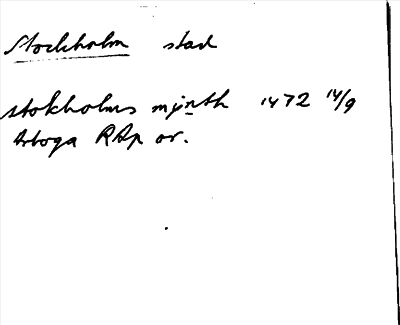 Stockholm stad
stokholms mynth 1472 14/9
Arboga RAp or.